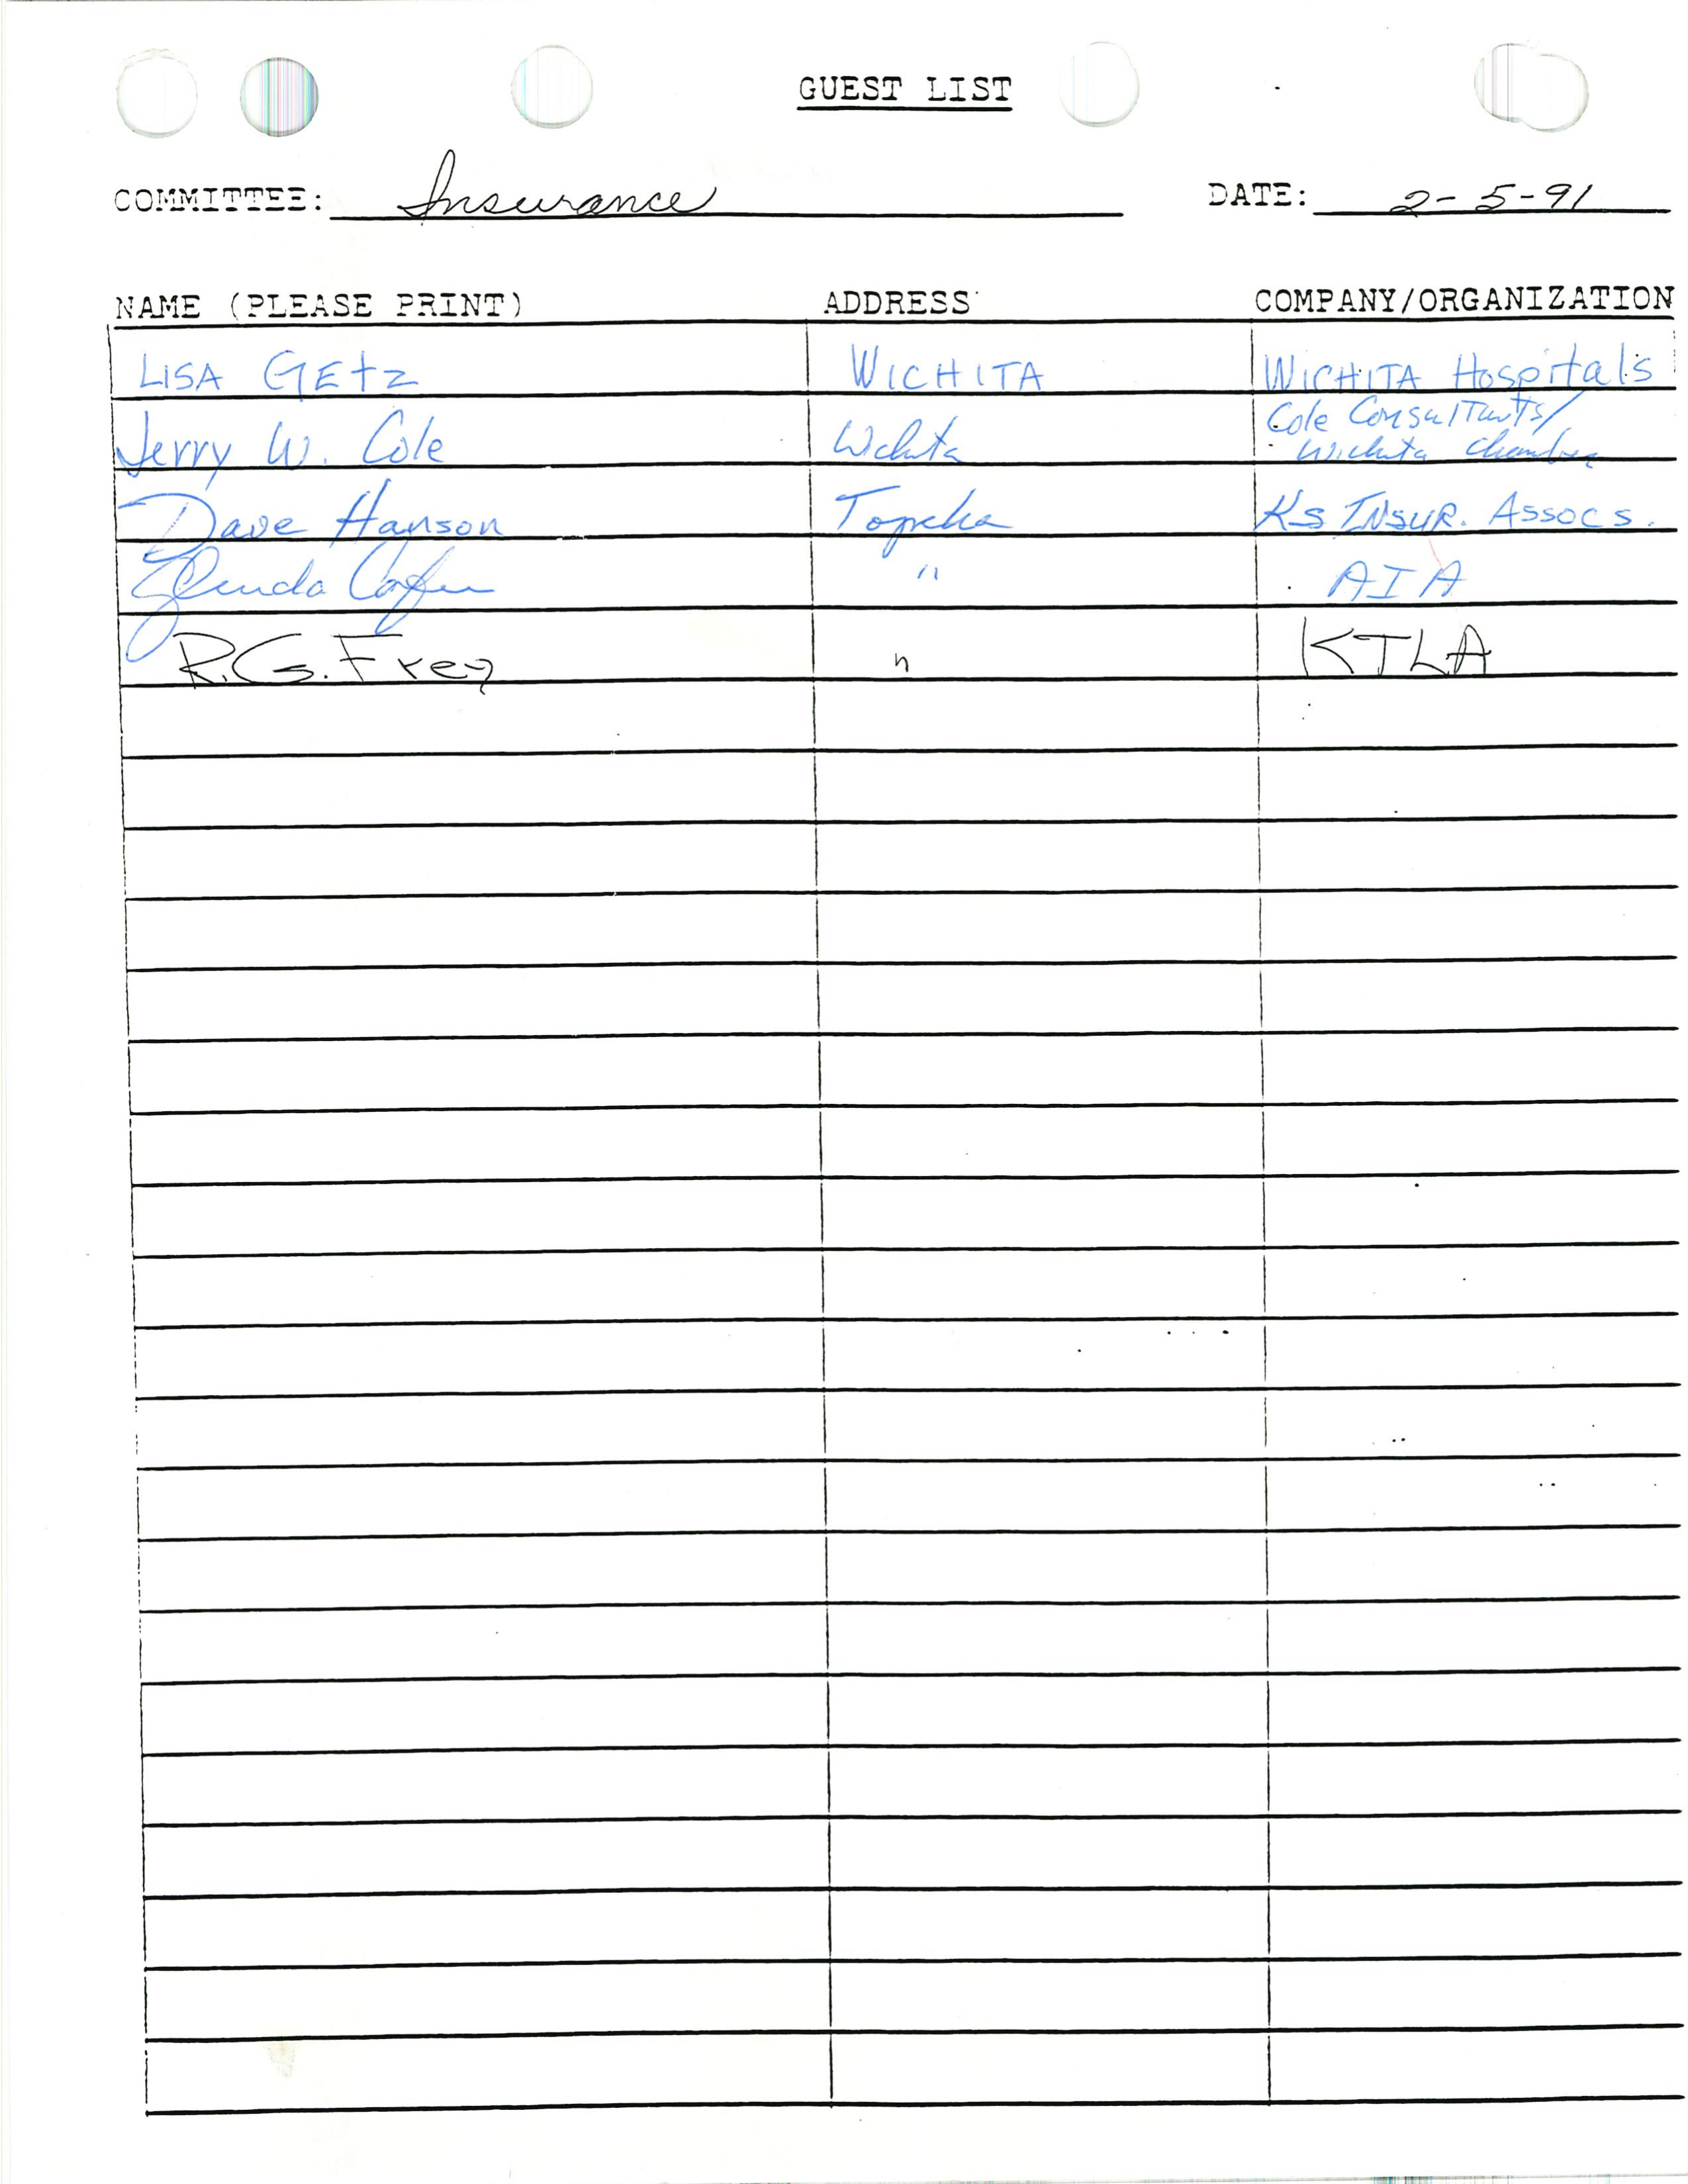 GUEST LIST
COMMITTEE: Insurance DATE: 2-5-91
NAME (PLEASE PRINT) ADDRESS COMPANY/ORGANIZATION
LISA GEtz WICHITA WICHITA Hospitals
Jerry W. Cole Wichita Cole Consultants/
Wichita Chamber
Dave Hanson Topeka Ks INSUR. Assocs.
Glenda Cafer " AIA
R.G. Frey " KTLA